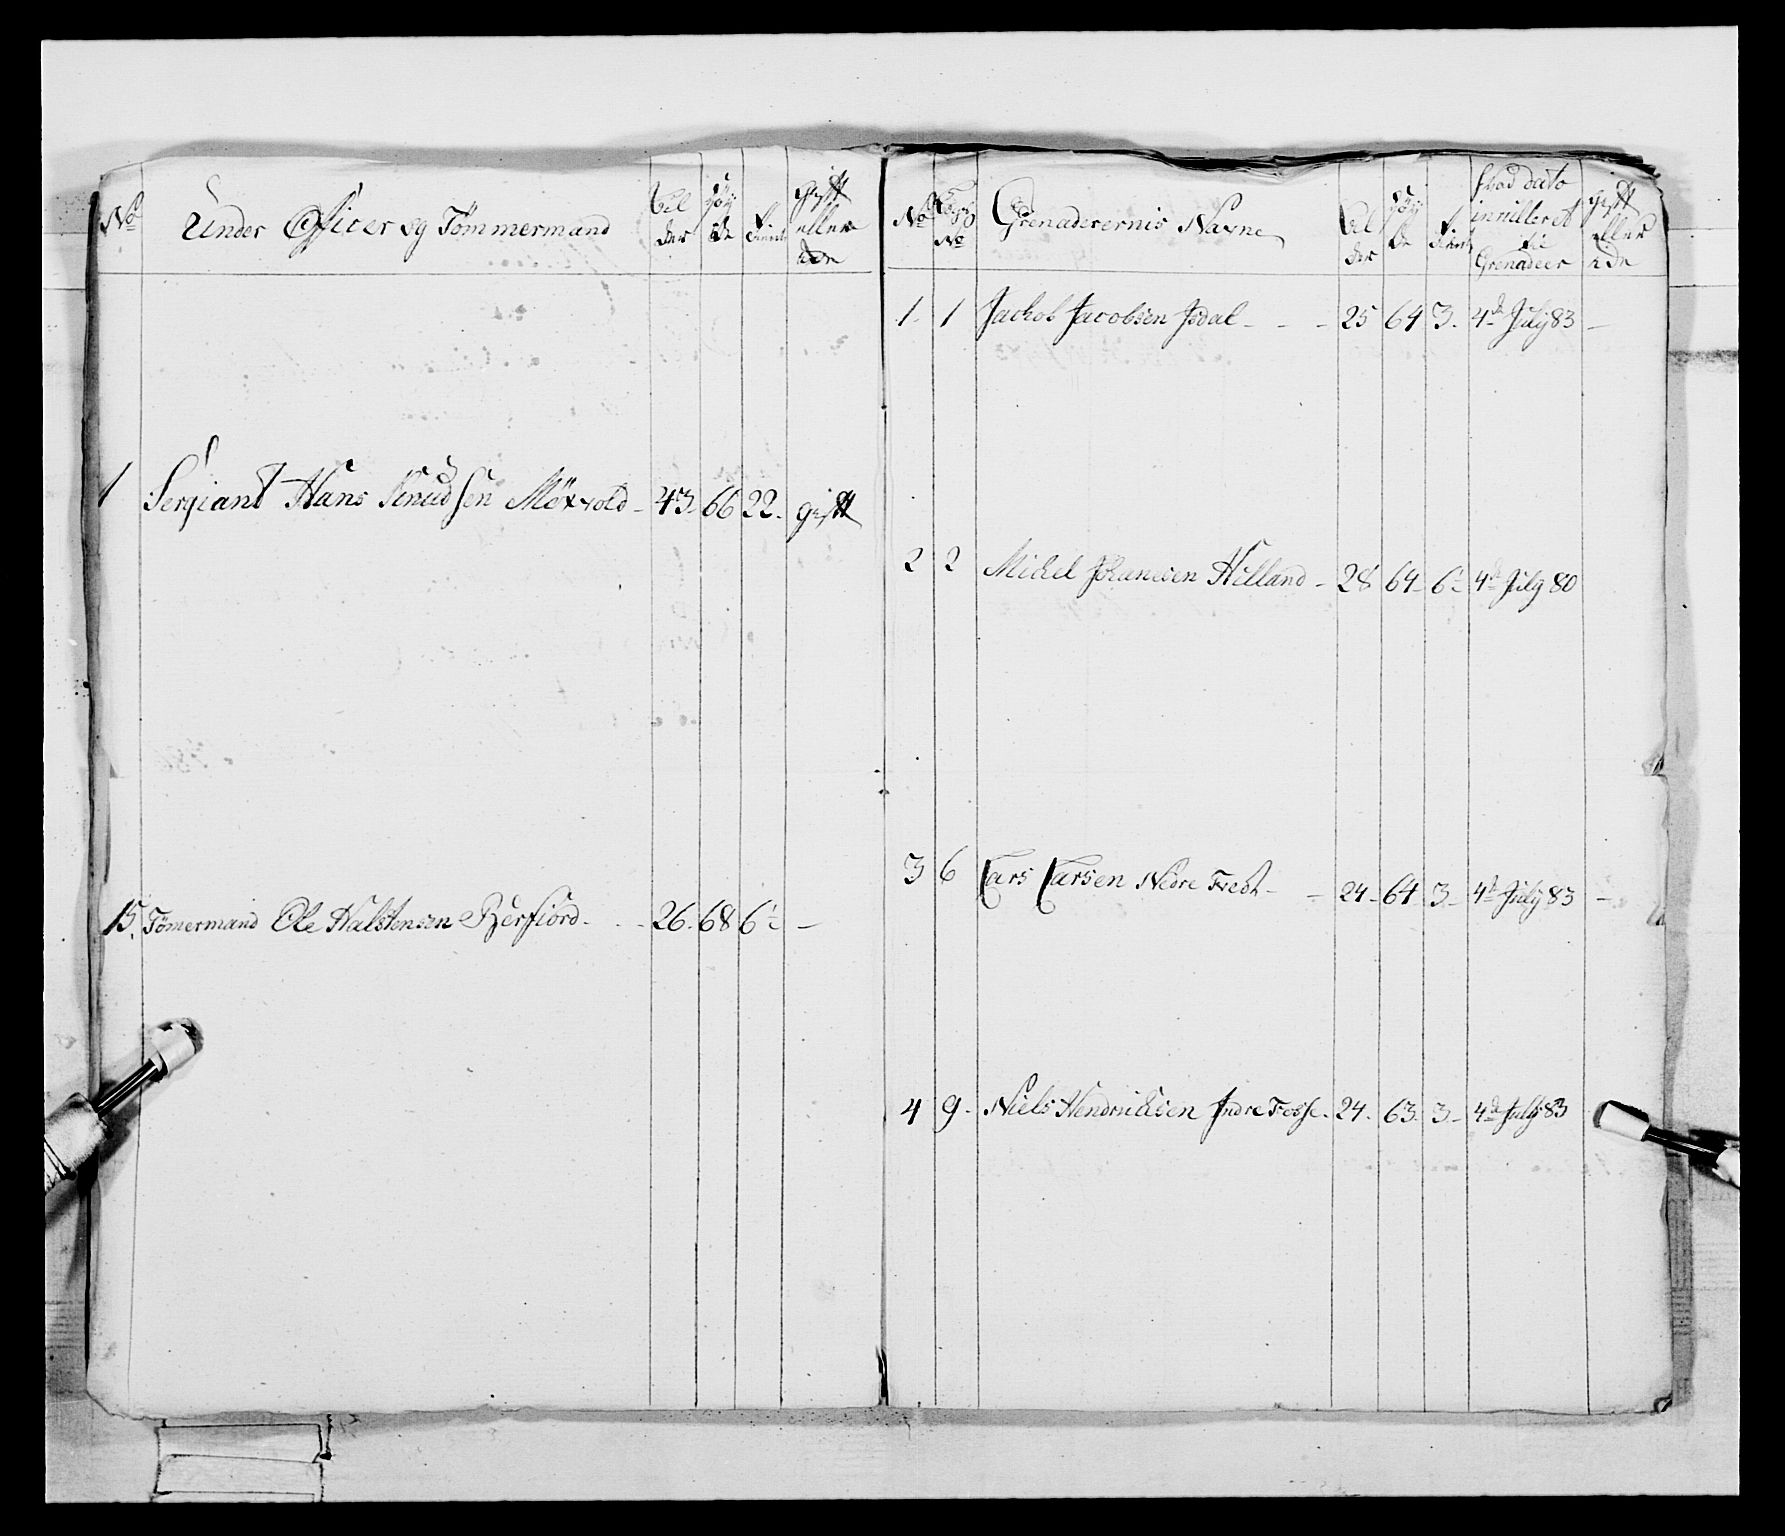 No Under Officer og Tömmermænd Al der Höy de tient gift eller ide
1 Sergiant Hans Knudsen Möxvold - 43. 66 22. gift
15. Tömermand Ole Halstensen Berfiord - 26. 68 6½ -
No No Grenaderernis Navne Al der Höy de tient hvad dato inrulleret Grenader gift eller ide
1. 1 Jackob Jacobsen Isdal - - - 25 64 3. 4de July 83 -
2 2 Michel Johannesen Helland - 28 64 - 6½ 4de July 80
3 6 Lars Larsen Nedre - 24 - 64 3 - 4de July 83 -
4 9. Niels Hendricksen Indre Fosse. 24. 63. 3 - 4de July 83